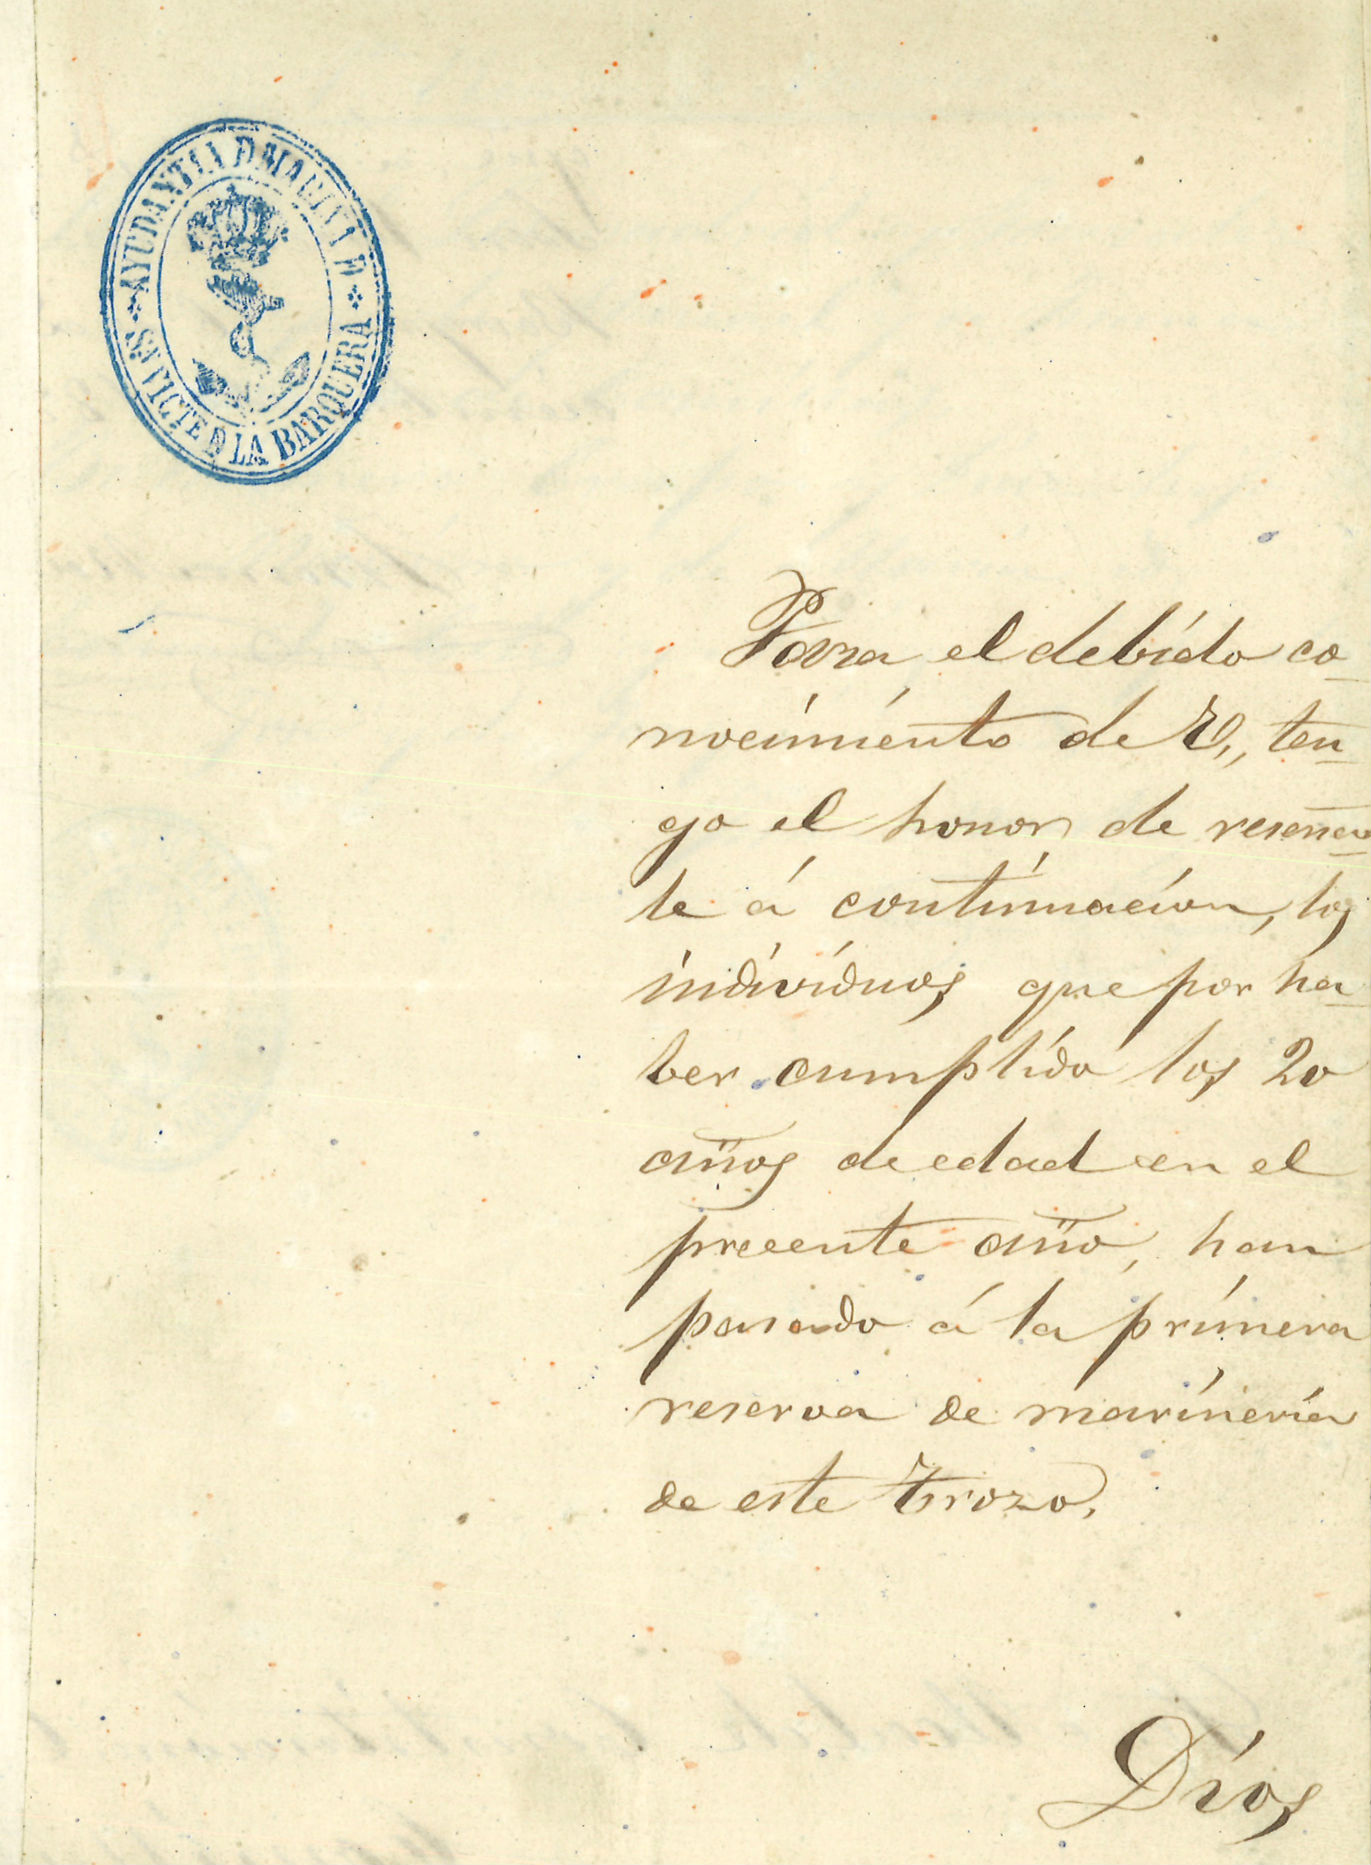 AYUDANTIA D MARINA D
SN VICTE D LA BARQUERA
Para el debido co_
nocimiento de V,, ten_
go el honor de reseñar_
le á continuacion, los
individuos que por ha_
ber cumplido los 20
años de edad en el
preente año, han
pasado á la primera
reserva de marinería
de este Trozo.
Dios